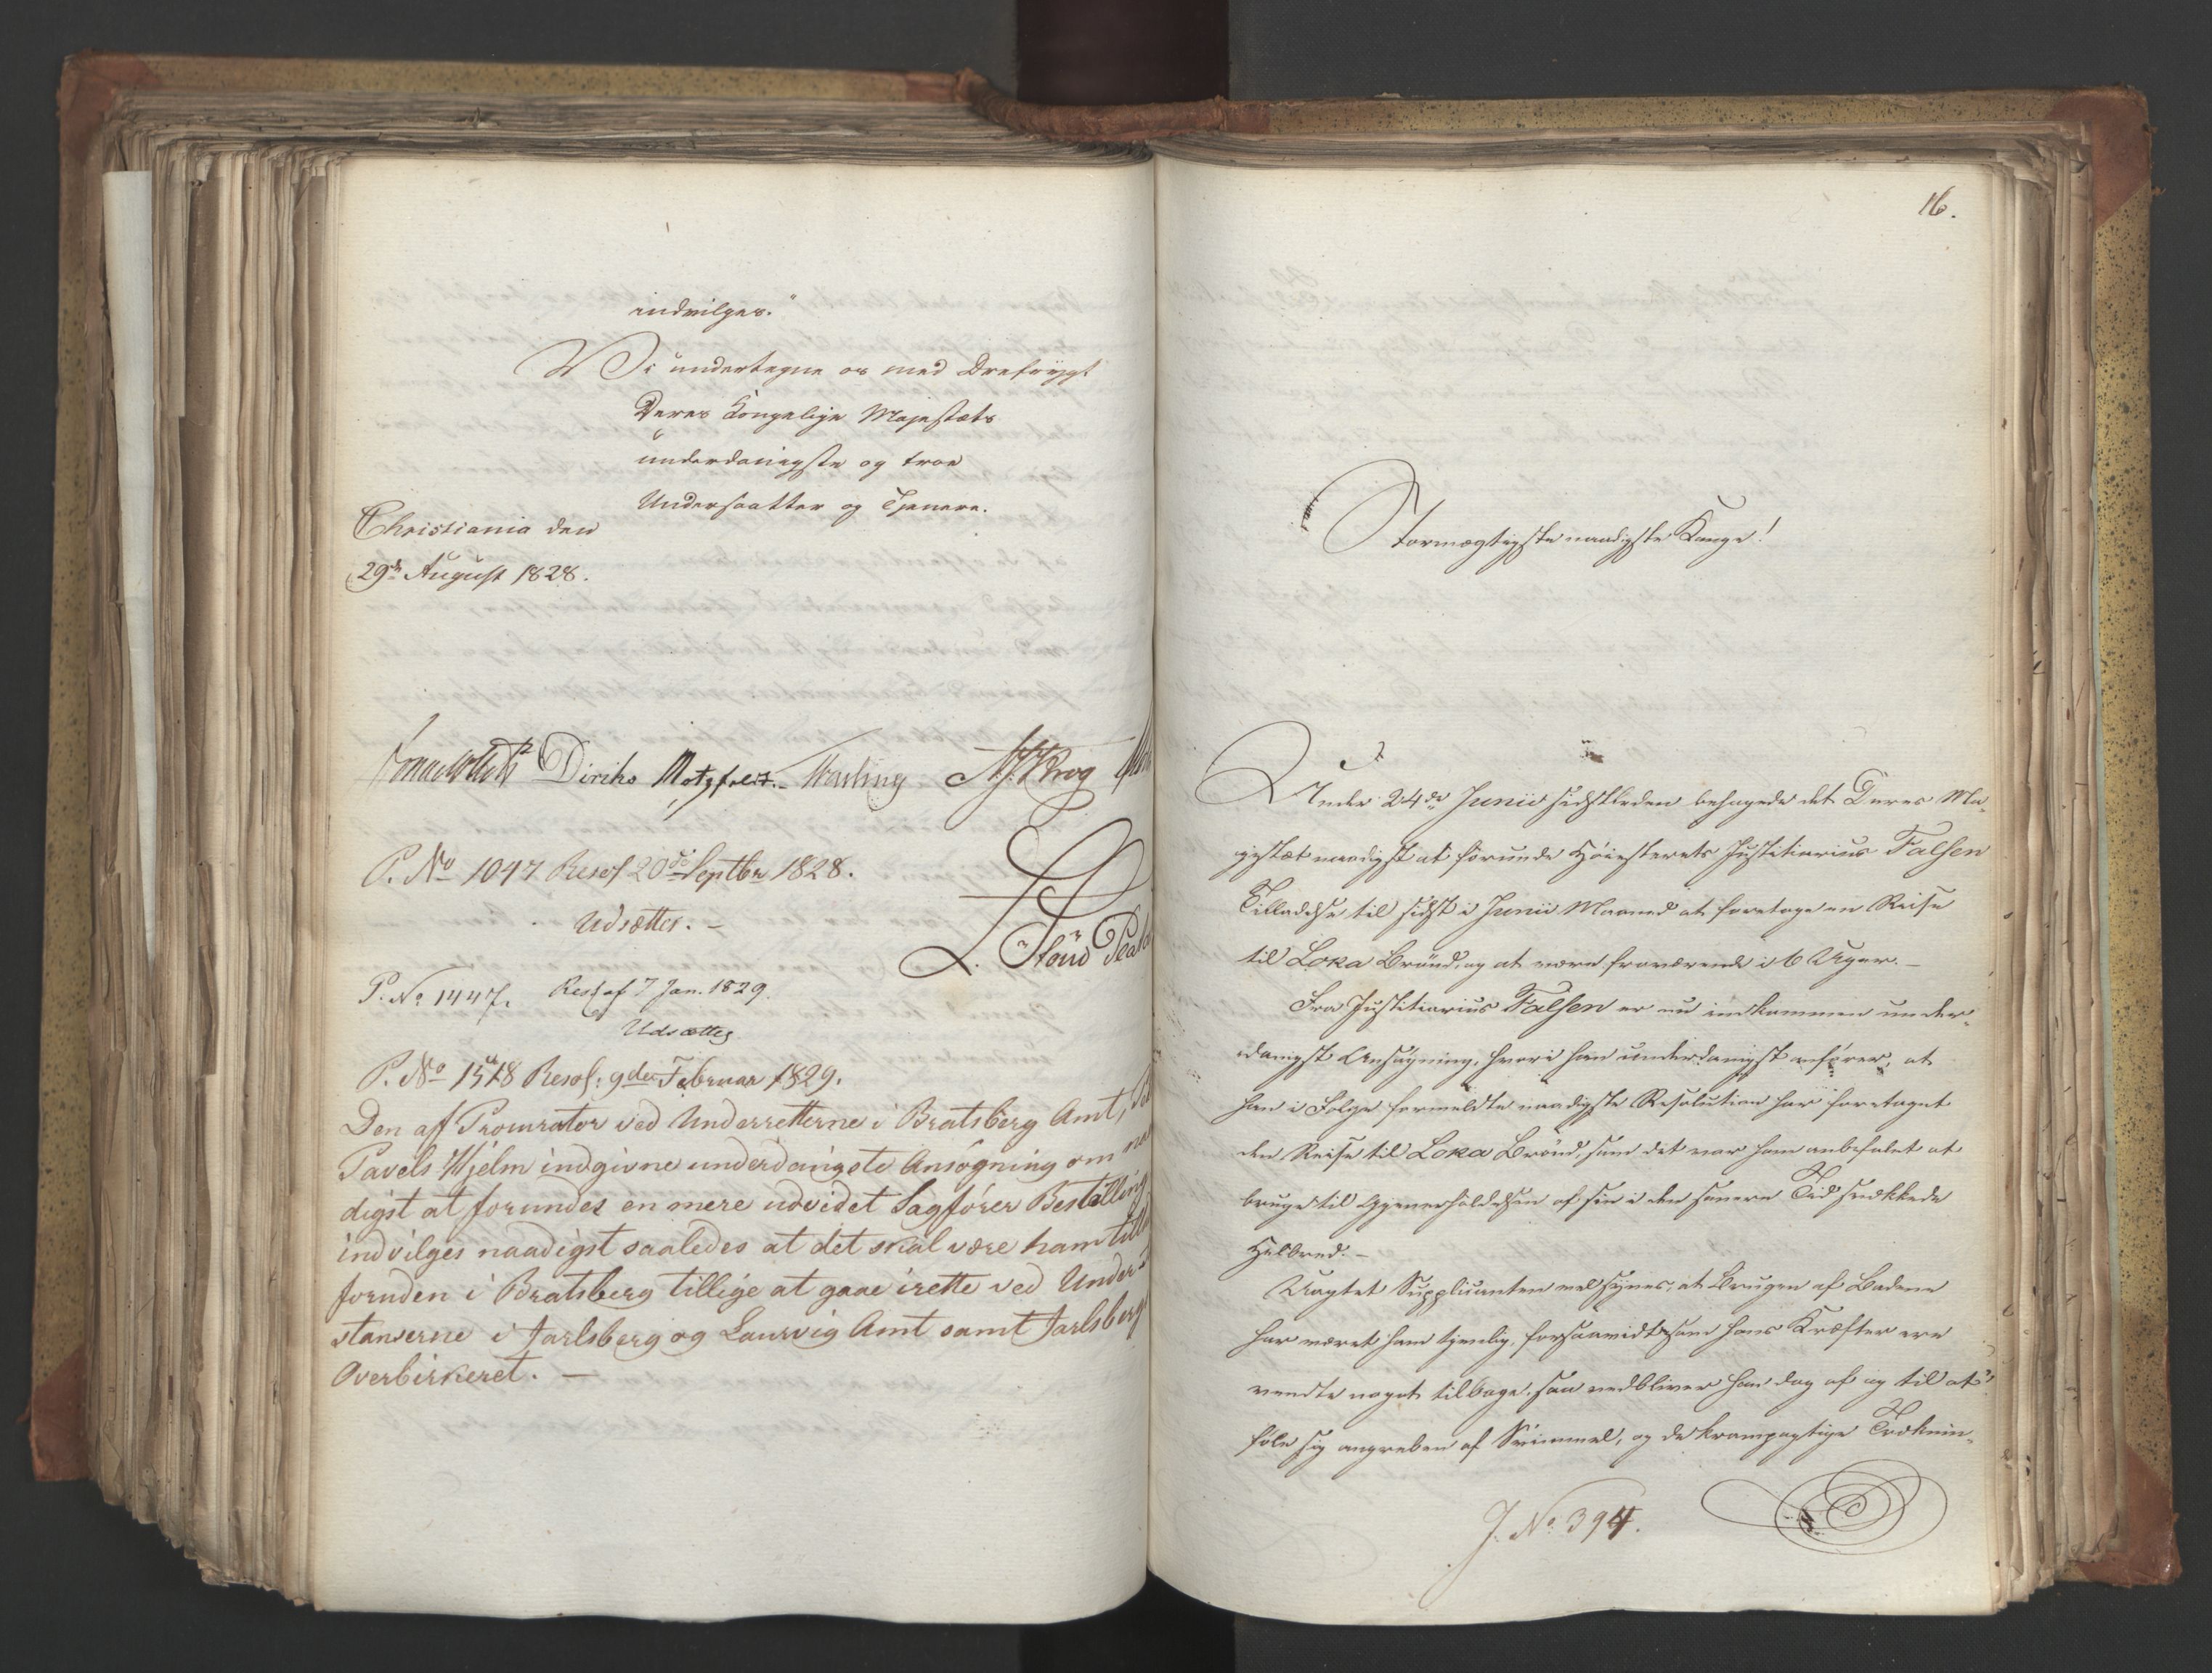 indvilges."
Vi undertegne os med Ærefrÿgt
Deres Kongelige Majestæts
underdanigste og troe
Undersaatter og Tjenere.
Christiania den
29de August 1828.
Diriks Motzfeldt. M.J. Krog
P. No 1047 Resol 20de Septbr 1828.
Udsættes. -
P. No 1447. Resol af 7 Jan. 1829.
Udsættes
P. No 1518 Resol: 9de Februar 1829.
Den af Procurator ved Underretterne i Bratsberg Amt,
Pavels Hjelm indgivne underdanigste Ansøgning om naa
digst at forundes en mere udvidet Sagfører Bestilling
indvilges naadigst saaledes at det skal være ham tilladt
foruden i Bratsberg tillige at gaae irette ved Under-
stanserne i Jarlsberg og Laurvig Amt samt Jarlsbergs
Overbirkeret. —
16.
Stormægtigste naadigste Konge!
Under 24de Junii sidstleden behagede det Deres Ma-
jestæt naadigst at forunde Høiesterets Justitiarius Falsen
Tilladelse til sidst i Junii Maaned at foretage en Reise
til Loka Brønd, og at være fraværende i 6 Uger. —
Fra Justitiarius Falsen er nu indkommen under-
danigst Ansøgning, hvori han underdanigst anfører, at
han i Følge formeldte naadigste Resolution har foretaget
den Reise til Loka Brønd, som det var ham anbefalet at
bruge til Gjenerholdelsen af sin i den senere Tid svækkede
Helbred. —
Uagtet Supplicanten vel synes, at Brugen af Badene
har været ham tjenlig, forsaavidt som hans Kræfter ere
vendte noget tilbage, saa vedbliver han dog af og til at
føle sig angreben af Svimmel, og de krampagtige Træknin-
J. No 394.